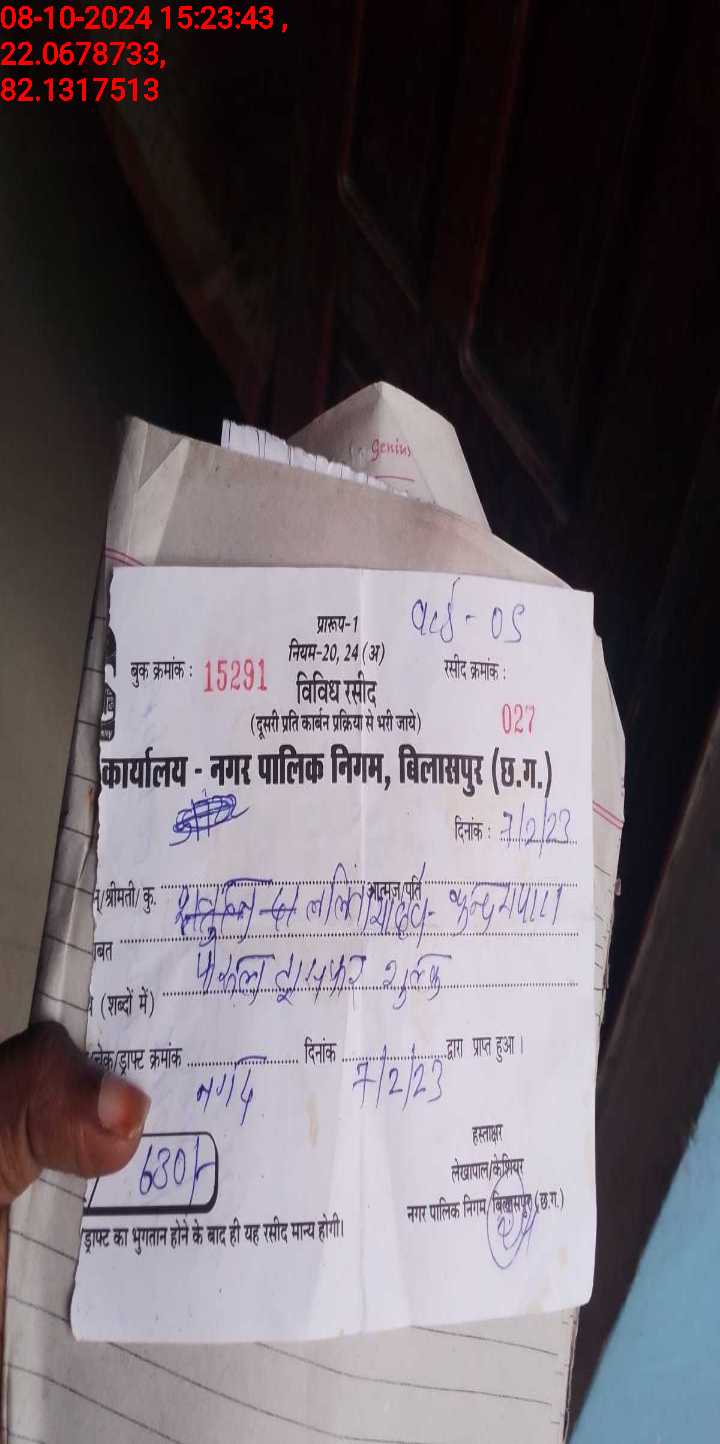 08-10-2024 15:23:43 ,
22.0678733,
82.1317513
Genius
प्रारूप-1
नियम-20, 24 (अ)
बुक क्रमांक : 15291
रसीद क्रमांक :
विविध रसीद
027
(दूसरी प्रति कार्बन प्रक्रिया से भरी जाये)
कार्यालय - नगर पालिक निगम, बिलासपुर (छ.ग.)
दिनांक : 7/2/23
/श्रीमती/ कु. ललित यादव आत्मज/पति
बत
शुल्क
(शब्दों में)
चेक/ड्राफ्ट क्रमांक नगद दिनांक 7/2/23 द्वारा प्राप्त हुआ।
630/-
हस्ताक्षर
लेखापाल/केशियर
नगर पालिक निगम, बिलासपुर (छ.ग.)
ड्राफ्ट का भुगतान होने के बाद ही यह रसीद मान्य होगी।